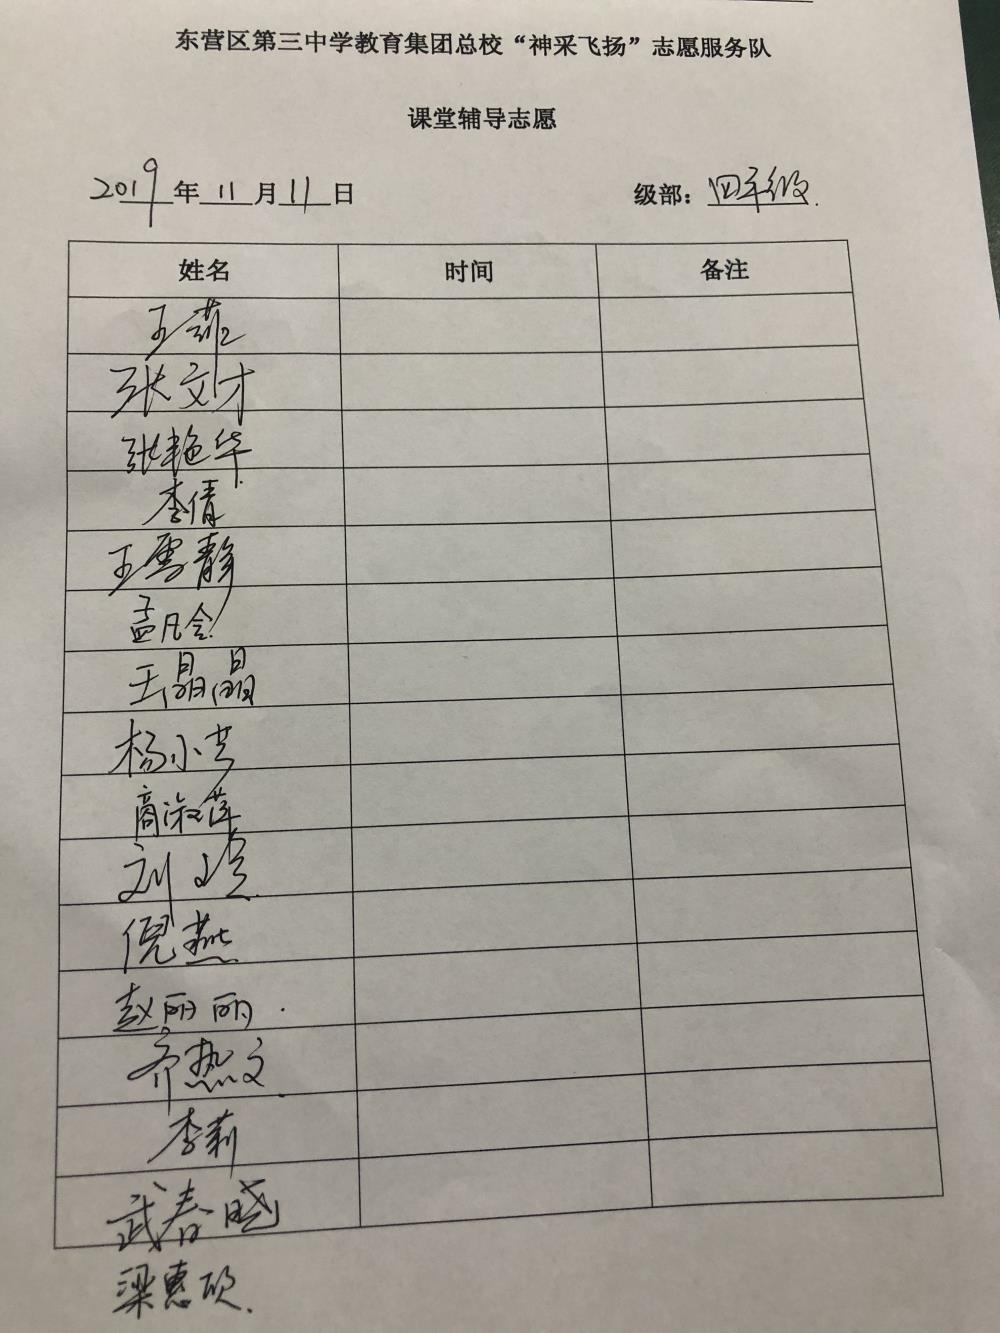 东营区第三中学教育集团总校“神采飞扬”志愿服务队
课堂辅导志愿
2019年11月11日 级部：四年级
姓名 时间 备注
王菲
张文才
张艳华
李倩
王雪静
孟凡会
王晶晶
杨小芳
商淑萍
刘
倪燕
赵丽丽
齐热文
李莉
武春晓
梁惠欣